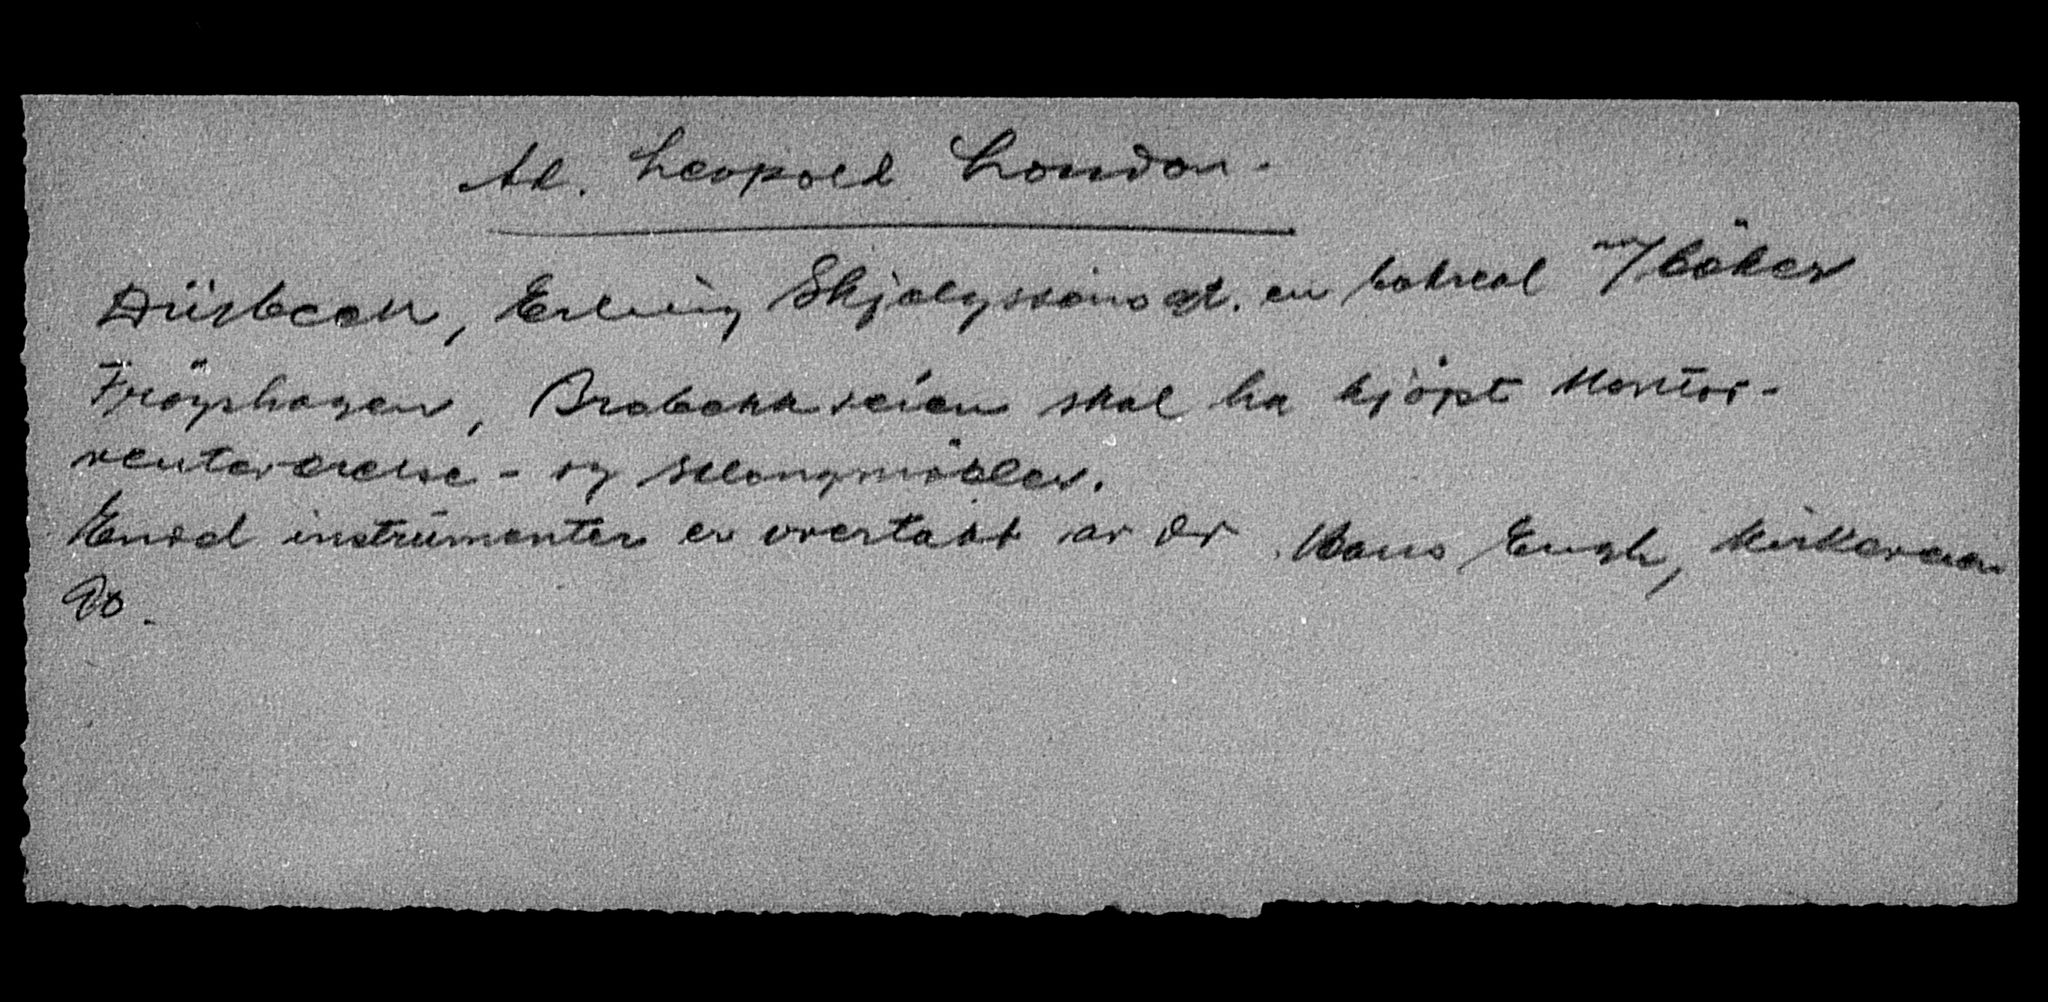 Ad. Leopold London.
Dürbeck, Erling Skjalgssons gt. en bokreol m/ böker
Fröyshagen, Brobekkveien skal ha kjöpt kontor-
venteværelse- og sklangmöbler.
Endel instrümenter er overtatt av dr Hans Engh, Kirkeveien
90.